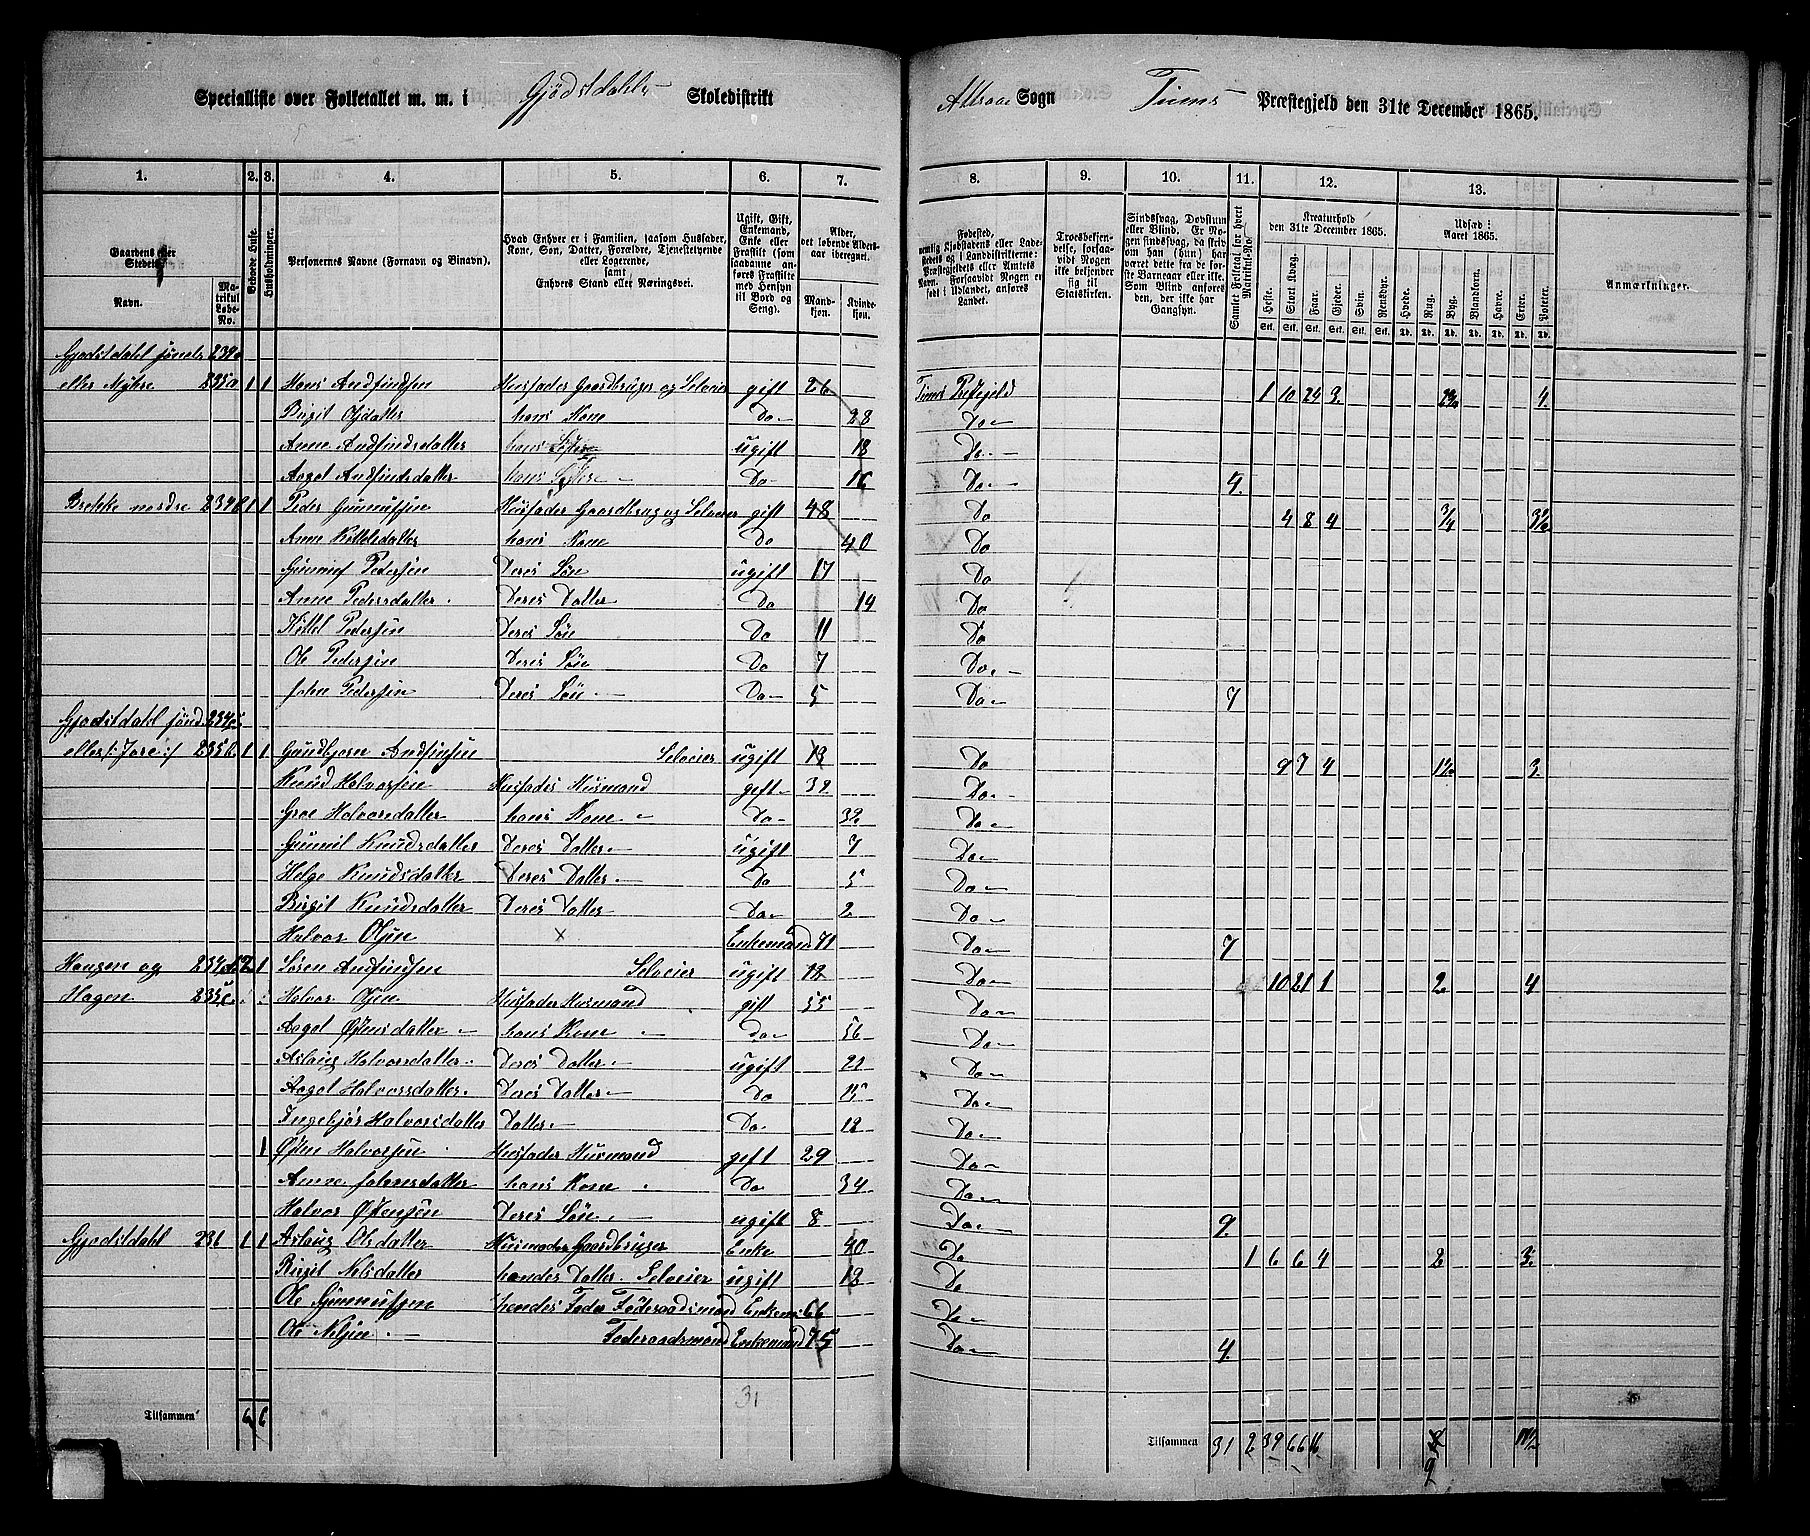 Specialliste over Folketallet m. m. i Gjødstdahls Skoledistrikt Attraae Sogn Tinns Præstegjeld den 31te December 1865.
1. 2. 3. 4. 5. 6. 7. 8. 9. 10. 11. 12. 13.
Gaardens eller Stedets Navn. Matrikul Løbe-No. Beboede Huse. Husholdninger. Personernes Navne (Fornavn og Binavn).
Hvad Enhver er i Familien, saasom Husfader, Kone, Søn, Datter, Forældre, Tjenestetyende eller Logerende, samt Enhvers Stand eller Næringsvei.
Ugift, Gift, Enkemand, Enke eller Fraskilt
Alder, det løbende Aldersaar iberegnet. Mandkjøn. Kvindekjøn.
Troesbekjendelse, forsaavidt Nogen ikke bekjender sig til Statskirken.
Sindssvag, Døvstum eller Blind.
Samlet Folketal for hvert Matrikul-No.
Kreaturhold den 31te December 1865. Heste. Stort Kvæg. Faar. Gjeder. Svin. Rensdyr.
Udsæd i Aaret 1865. Hvede. Rug. Byg. Blandkorn. Havre. Erter. Poteter.
Anmærkninger.
Gjødstdahl søndre 234a
eller Myhre 235a 1 1 Hans Andfindsen Husfader Gaardbruger og Selveier gift 26 Tinns Præstegjeld 1 10 24 3 4
Birgit Olsdatter hans Kone Do 28 Do
Anne Andfindsdatter hans Søster ugift 18 Do
Aagot Andfindsdatter hans Søster Do 16 Do 4
Brekke nordre 234b 1 1 Peder Gunnufsen Husfader Gaardbrug og Selveier gift 48 Do 4 8 4 3/4 3½
Anne Kittelsdatter hans Kone Do 40 Do
Gunnuf Pedersen Deres Søn ugift 17 Do
Anne Pedersdatter Deres Datter Do 14 Do
Kittel Pedersen Deres Søn Do 11 Do
Ole Pedersen Deres Søn Do 7 Do
John Pedersen Deres Søn Do 5 Do 7
Gjødstdahl sønd. 234c
eller Jore 235b 1 1 Gundbjørn Andfindsen Selveier ugift 13 Do 9 7 4 1½ 3
Knud Halvorsen Husfader Husmand gift 32 Do
Groe Halvorsdatter hans Kone Do 32 Do
Gunnil Knudsdatter Deres Datter ugift 7 Do
Helge Knudsdatter Deres Datter Do 5 Do
Birgit Knudsdatter Deres Datter Do 2 Do
Halvor Olsen × Enkemand 71 Do 7
Haugen og 234d 2 1 Søren Andfindsen Selveier ugift 12 Do 10 21 1 2 4
Hagen 235c Halvor Olsen Husfader Husmand gift 55 Do
Aagot Østensdatter hans Kone Do 56 Do
Aslaug Halvorsdatter Deres Datter ugift 22 Do
Aagot Halvorsdatter Deres Datter Do 15 Do
Ingebjør Halvorsdatter Datter Do 12 Do
1 Østen Halvorsen Husfader Husmand gift 29 Do
Anne Johnsdatter hans Kone Do 34 Do
Halvor Østensen Deres Søn ugift 8 Do 9
Gjødstdahl 236 1 1 Aslaug Olsdatter Husmoder Gaardbruger Enke 40 Do 1 6 6 4 2 3
Birgit Nelsdatter hendes Datter Selveier ugift 12 Do
Ole Gunnufsen hendes Fader Føderaadsmand Enkem 66 Do
Ole Nelsen Føderaadsmand Enkemand 75 Do 4
31
Tilsammen 6 6
Tilsammen 31 2 39 66 16 9